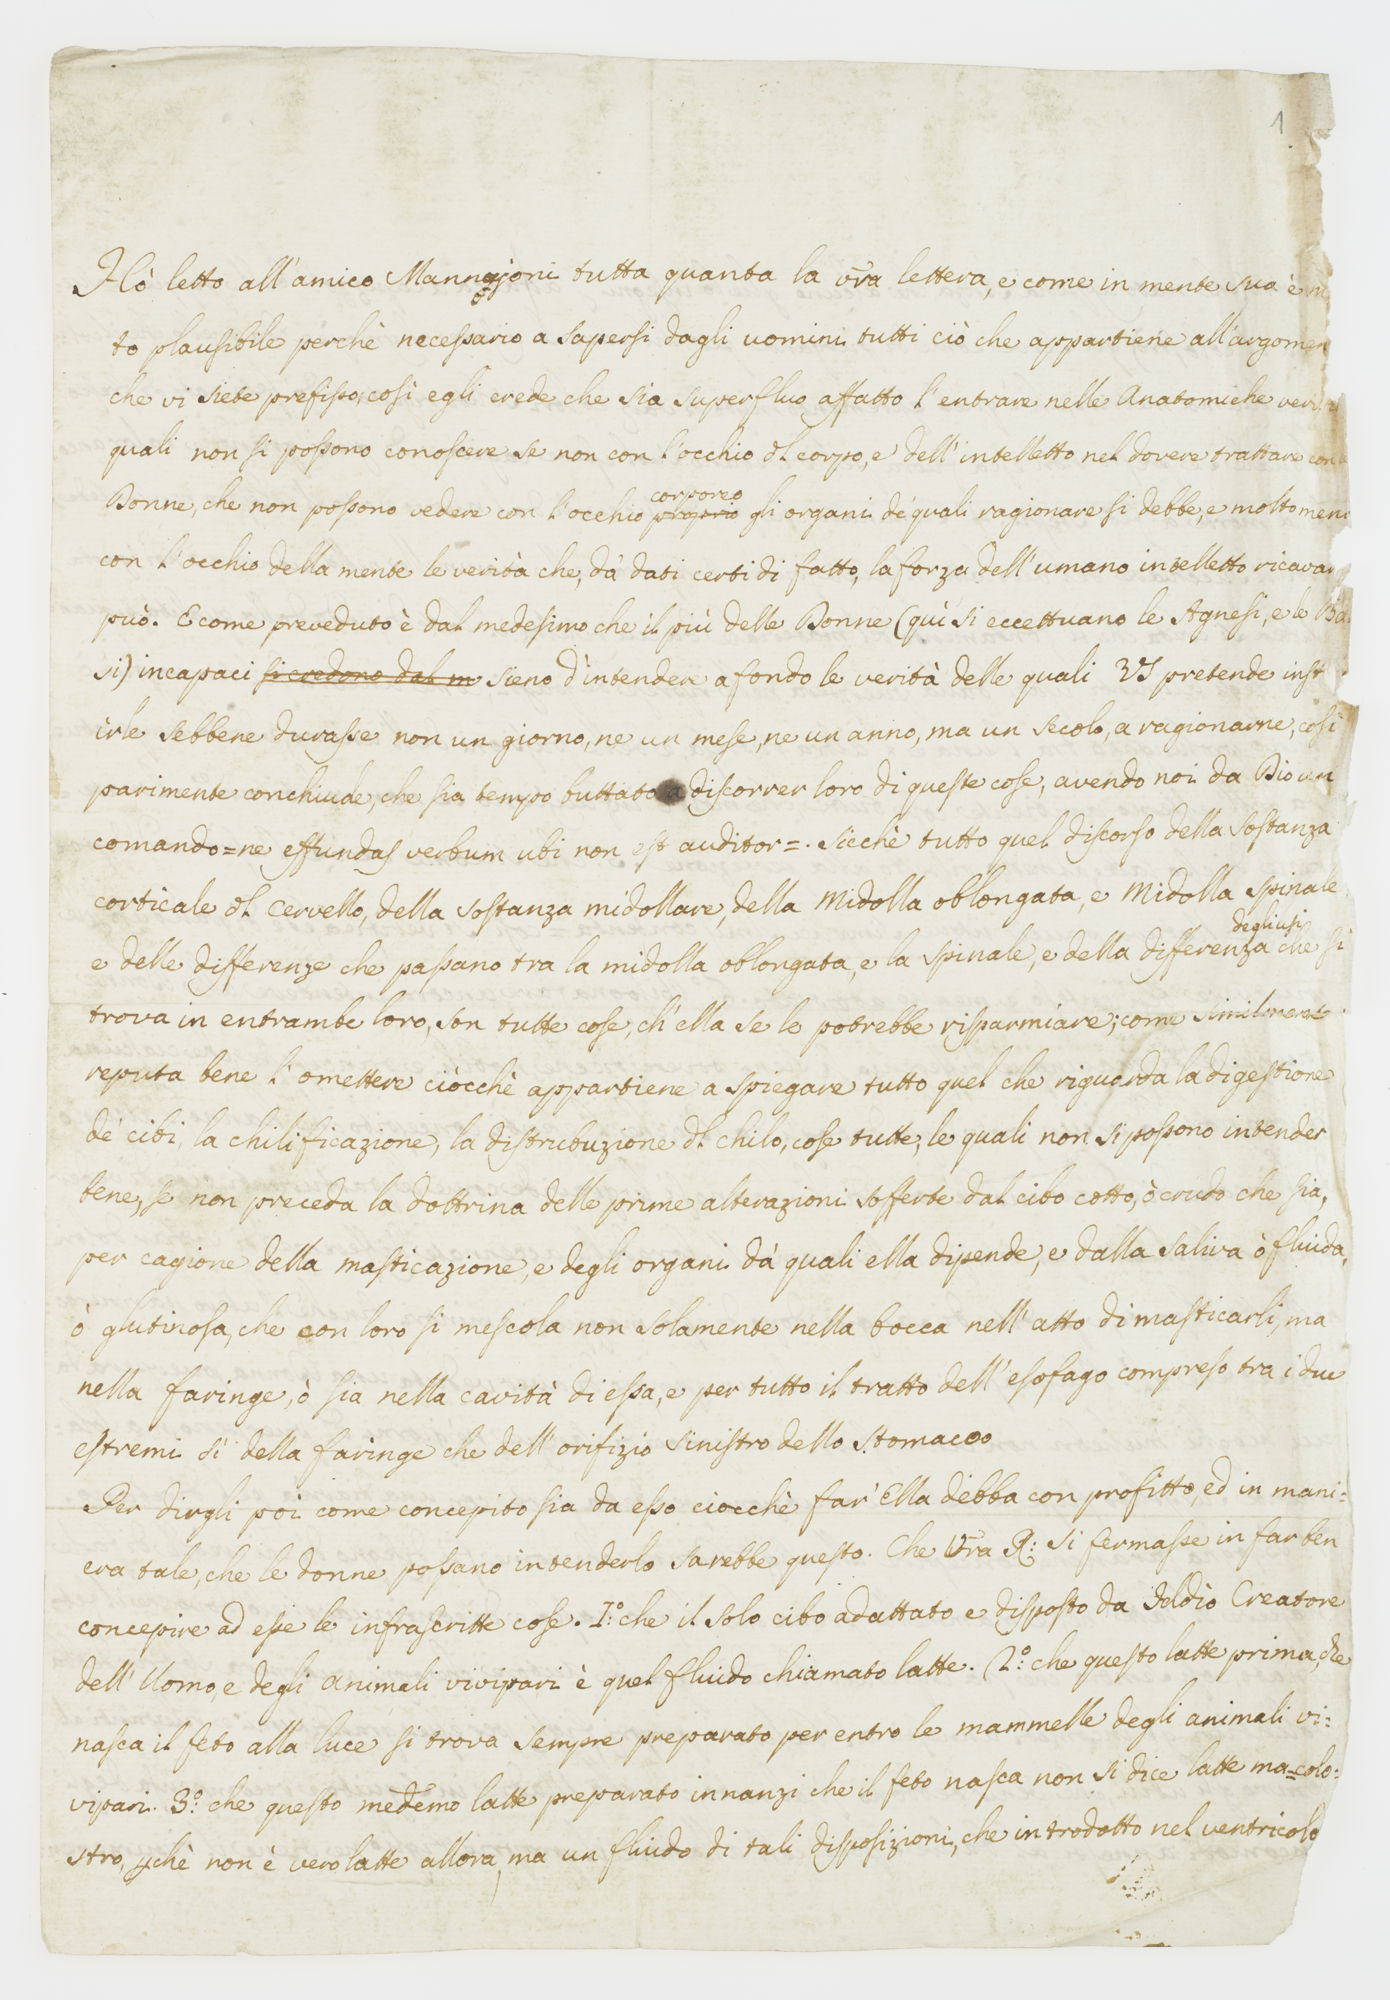 1
Hò letto all'amico Mannajoni tutta quanta la vrã lettera, e come in mente sua è m
to plausibile perchè necessario a sapersi dagli uomini tutti ciò che appartiene all'argomen
che vi siete prefisso, così egli crede che sia superfluo affatto l'entrare nelle Anatomiche veri
quali non si possono conoscere se non con l'occhio dl corpo, e dell'intelletto nel dovere trattare con
Donne, che non possono vedere con l'occhio proprio corporeo gli organi de' quali ragionare si debbe, e molto men
con l'occhio della mente le verità che, da' dati certi di fatto, la forza dell'umano intelletto ricavar
può. E come preveduto è dal medesimo che il più delle Donne (quì si eccettuano le Agnesi, e le Bas
si) incapaci si credono dal m sieno d'intendere a fondo le verità delle quali VS pretende inst
irle sebbene durasse non un giorno, ne un mese, ne un anno, ma un secolo, a ragionarne, così
parimente conchiude, che sia tempo buttato a discorrer loro di queste cose, avendo noi da Dio un
comando = ne effundas verbum ubi non est auditor =. Sicchè tutto quel discorso della sostanza
corticale dl Cervello, della sostanza midollare, della Midolla oblongata, e Midolla spinale
e delle differenze che passano tra la midolla oblongata, e la spinale, e della differenza degli usi che si
trova in entrambe loro, son tutte cose, ch'ella se le potrebbe risparmiare; come similmente
reputa bene l'omettere ciòcchè appartiene a spiegare tutto quel che riguarda la digestione
de' cibi, la chilificazione, la distribuzione dl chilo, cose tutte, le quali non si possono intender
bene, se non preceda la dottrina delle prime alterazioni sofferte dal cibo cotto, ò crudo che sia,
per cagione della masticazione, e degli organi da' quali ella dipende, e dalla saliva ò fluida,
ò glutinosa, che con loro si mescola non solamente nella bocca nell'atto di masticarli, ma
nella faringe, ò sia nella cavità di essa, e per tutto il tratto dell'esofago compreso tra i due
estremi sì della faringe che dell'orifizio sinistro dello stomaco
Per dirgli poi come concepito sia da esso ciocchè far' Ella debba con profitto, ed in mani=
era tale, che le donne possano intenderlo sarebbe questo. Che Vrã R: si fermasse in far ben
concepire ad esse le infrascritte cose. 1:° che il solo cibo adattato e disposto da Iddio Creatore
dell'Uomo, e degli animali vivipari è quel fluido chiamato latte. (2:° che questo latte prima, che
nasca il feto alla luce si trova sempre preparato per entro le mammelle degli animali vi=
vipari. 3:° che questo medemo latte preparato innanzi che il feto nasca non si dice latte ma = colo=
stro, pchè non è vero latte allora, ma un fluido di tali disposizioni, che introdotto nel ventricolo